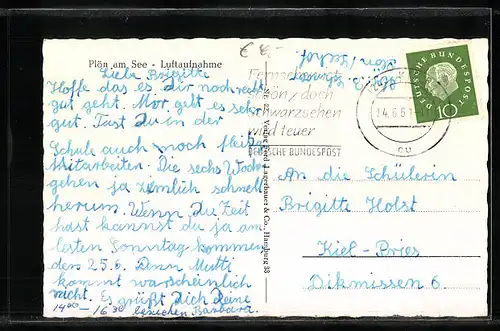 € 4.-
Plön am See - Luftaufnahme
Liebe Brigitte
Hoffe das es dir noch recht
gut geht. Mir geht es sehr
gut. Tust du in der
Schule auch noch fleißig
Mitarbeiten. Die sechs Wochen
gehen ja ziemlich schnell
herum. Wenn Du Zeit
hast kannst du ja am
letzten Sonntag kommen
den 25.6. Denn Mutti
kommt warscheinlich
nicht. Es grüßt Dich Deine
14⁰⁰-16³⁰ besuchen Barbara.
Verlag Lagerbauer & Co, Hamburg 33
Fernsehen
schön / doch
schwarzsehen
wird teuer
DEUTSCHE BUNDESPOST
14.6.61
DEUTSCHE BUNDESPOST
10
An die Schülerin
Brigitte Holst
Kiel-Pries
Dikmissen 6.